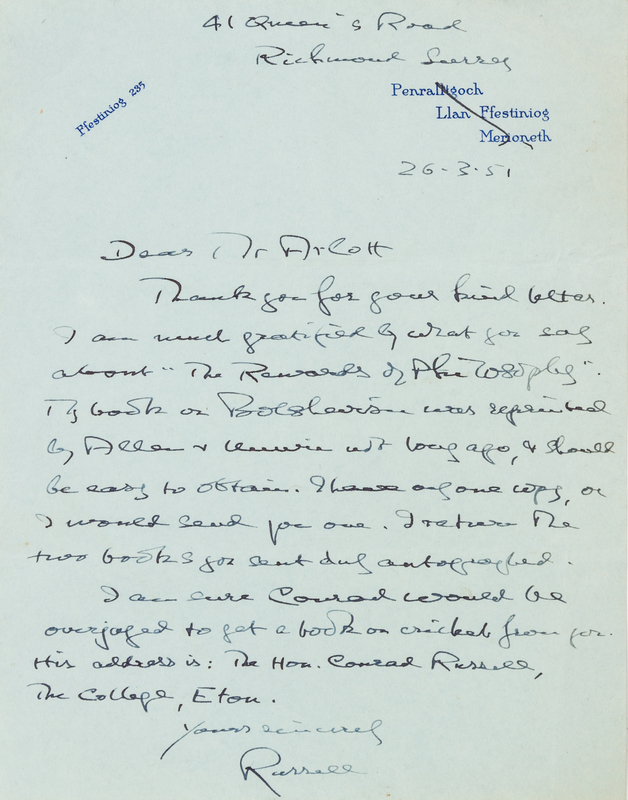 41 Queen's Road
Richmond Surrey
Ffestiniog 235
Penralltgoch
Llan Ffestiniog
Merioneth
26-3-51
Dear Mr Arlott
Thank you for your kind letter.
I am much gratified by what you say
about "The Rewards of Philosophy".
My book on Bolshevism was reprinted
by Allen & Unwin not long ago, & should
be easy to obtain. I have only one copy, or
I would send you one. I return the
two books you sent duly autographed.
I am sure Conrad would be
overjoyed to get a book on cricket from you.
His address is: The Hon. Conrad Russell,
The College, Eton.
Yours sincerely
Russell